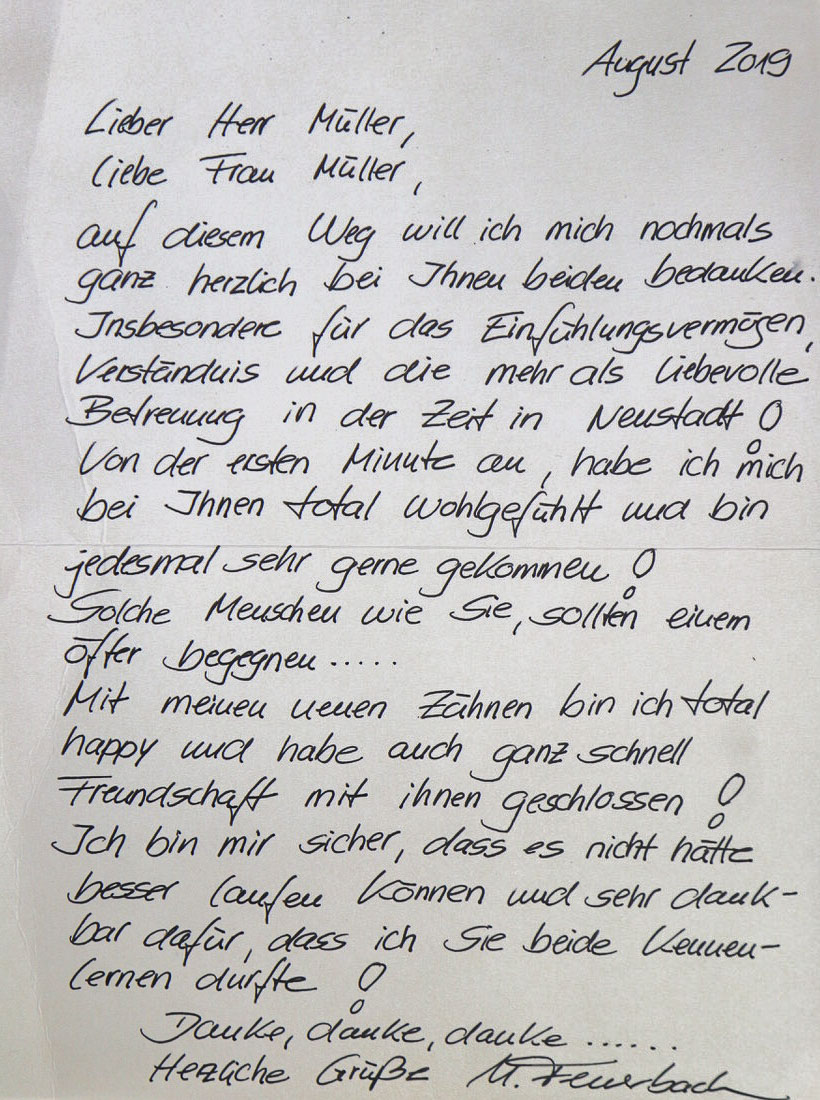 August 2019
Lieber Herr Müller,
liebe Frau Müller,
auf diesem Weg will ich mich nochmals
ganz herzlich bei Ihnen beiden bedanken.
Insbesondere für das Einfühlungsvermögen,
Verständnis und die mehr als liebevolle
Betreuung in der Zeit in Neustadt!
Von der ersten Minute an, habe ich mich
bei Ihnen total wohlgefühlt und bin
jedesmal sehr gerne gekommen!
Solche Menschen wie Sie, sollten einem
öfter begegnen.....
Mit meinen neuen Zähnen bin ich total
happy und habe auch ganz schnell
Freundschaft mit ihnen geschlossen!
Ich bin mir sicher, dass es nicht hätte
besser laufen können und sehr dank-
bar dafür, dass ich Sie beide kennen-
lernen durfte!
Danke, danke, danke......
Herzliche Grüße M. Feuerbach